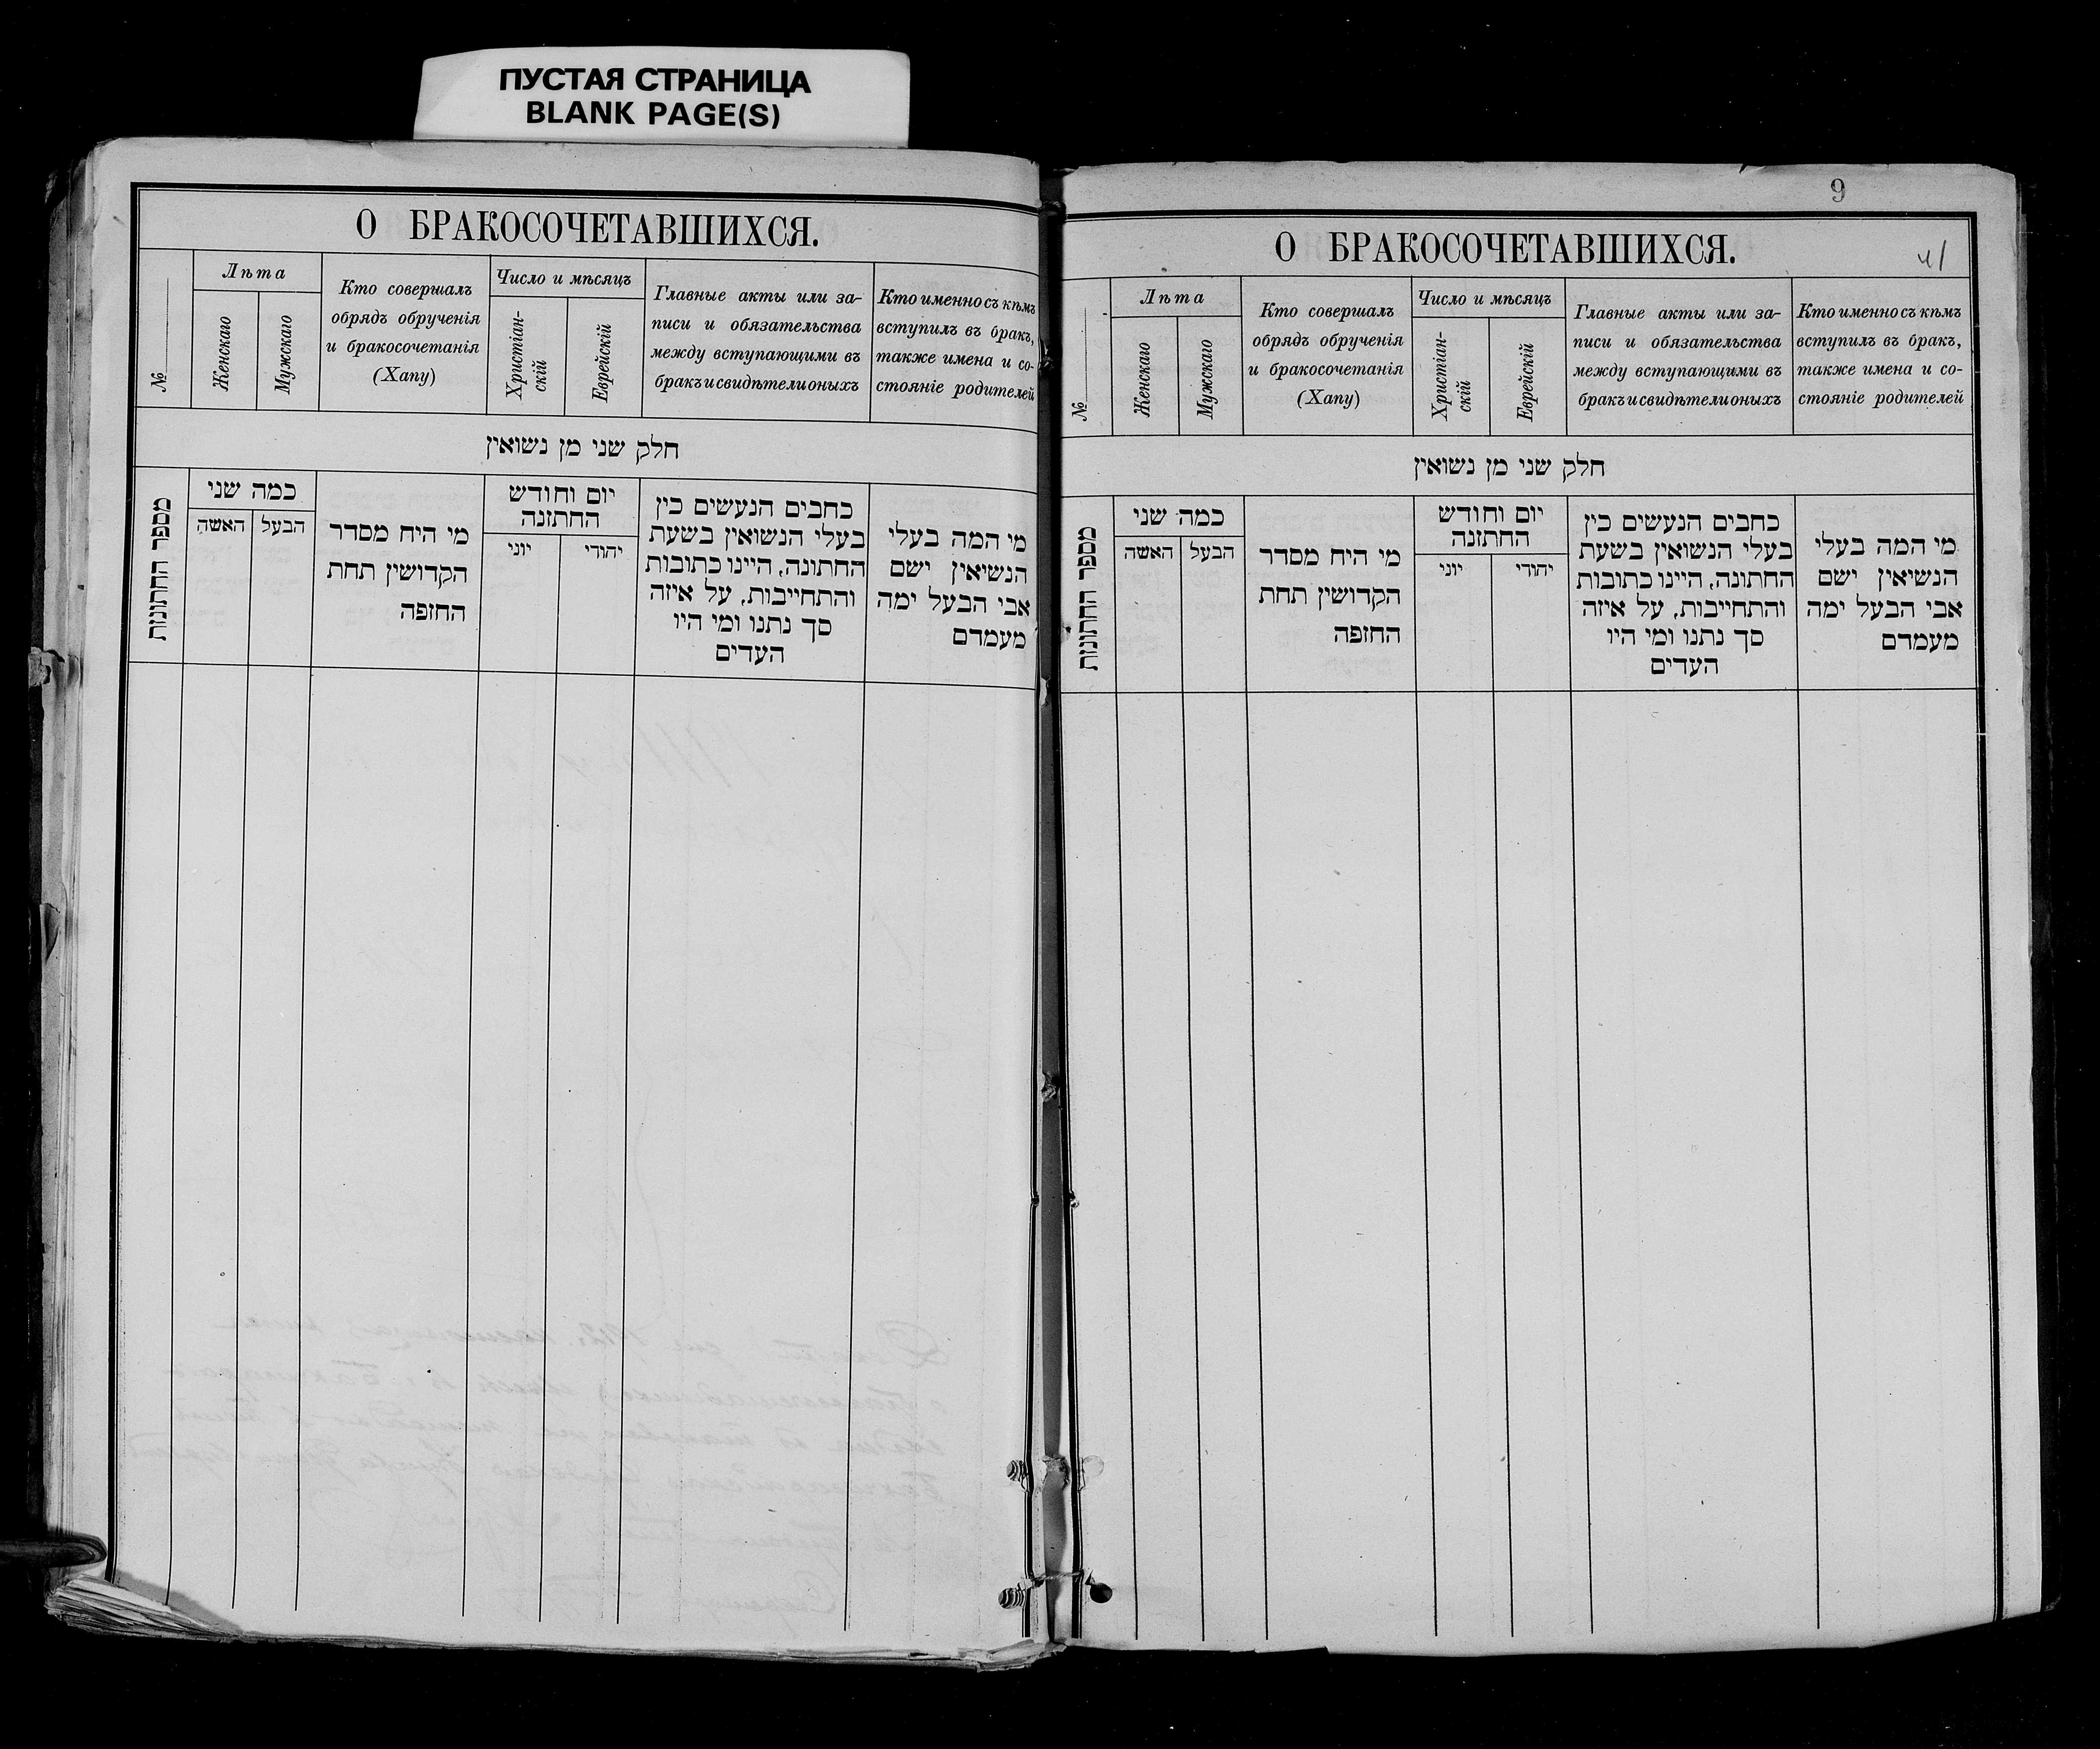 ПУСТАЯ СТРАНИЦА
BLANK PAGE(S)
О БРАКОСОЧЕТАВШИХСЯ.
№
Лѣта
Женскаго
Мужскаго
Кто совершалъ
обрядъ обрученія
и бракосочетанія
(Хапу)
Число и мѣсяцъ
Христіан-
скій
Еврейскій
Главные акты или за-
писи и обязательства
между вступающими въ
бракъ и свидѣтели оныхъ
Кто именно съ кѣмъ
вступилъ въ бракъ,
также имена и со-
стояніе родителей
חלק שני מן נשואין
מספר החתונות
כמה שני
האשה
הבעל
מי היח מסדר
הקדושין תחת
החזפה
יום וחודש
החתזנה
יוני
יהודי
כחבים הנעשים כין
בעלי הנשואין בשעת
החתונה, היינו כתובות
והתחייבות, על איזה
סך נתנו ומי היו
העדים
מי המה בעלי
הנשיאין ישם
אבי הבעל ימה
מעמדם
9
О БРАКОСОЧЕТАВШИХСЯ.
41
№
Лѣта
Женскаго
Мужскаго
Кто совершалъ
обрядъ обрученія
и бракосочетанія
(Хапу)
Число и мѣсяцъ
Христіан-
скій
Еврейскій
Главные акты или за-
писи и обязательства
между вступающими въ
бракъ и свидѣтели оныхъ
Кто именно съ кѣмъ
вступилъ въ бракъ,
также имена и со-
стояніе родителей
חלק שני מן נשואין
מספר החתונות
כמה שני
האשה
הבעל
מי היח מסדר
הקדושין תחת
החזפה
יום וחודש
החתזנה
יוני
יהודי
כחבים הנעשים כין
בעלי הנשואין בשעת
החתונה, היינו כתובות
והתחייבות, על איזה
סך נתנו ומי היו
העדים
מי המה בעלי
הנשיאין ישם
אבי הבעל ימה
מעמדם